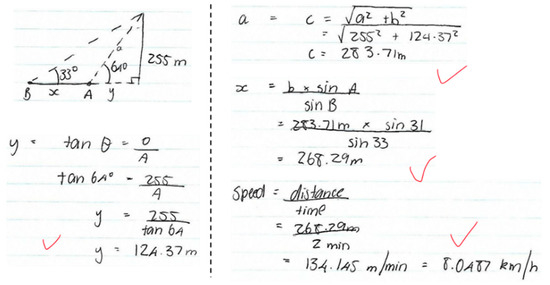 255m
33° a 64°
B x A y
y = tan θ = O/A
tan 64° = 255/A
y = 255/tan 64
y = 124.37m
a = c = √a² + b²
= √255² + 124.37²
c = 283.71m
x = b x sin A / sin B
= 283.71m x sin 31 / sin 33
= 268.29m
Speed = distance/time
= 268.29m / 2 min
= 134.145 m/min = 8.0487 km/h